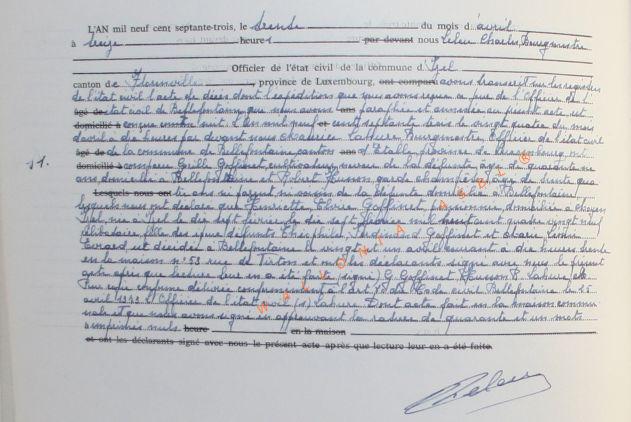 L'AN mil neuf cent septante-trois, le trente du mois d'avril
à seize heures par devant nous Leleu Charles, Bourgmestre
Officier de l'état civil de la commune d'Izel
canton de Florenville, province de Luxembourg, ont comparu avons transcrit sur les registres
de l'état civil l'acte de décès dont l'expédition que nous avons reçue ce jour de l'Officier de l'
âgé de état civil de Bellefontaine que nous avons ans paraphée et annexée au présent acte est
domicilié à conçue comme suit. L'an mil neuf et cent septante trois le vingt quatre du mois
d'avril à dix heures par devant nous Maurice Lahure Bourgmestre Officier de l'état civil
âgé de de la commune de Bellefontaine canton ans d'Etalle province de Luxembourg ont
11.
domicilié à comparu Goffinet, cultivateur, neveu de la défunte âgé de quarante
ans domicilié à Bellefontaine et Robert Husson garde champêtre âgé de trente
Lesquels nous ont ans ni parent ni voisin de la défunte domicilié à Bellefontaine
lesquels nous ont déclaré que Henriette Goffinet domiciliée à
Izel, née à Izel le dix sept février mil huit cent quatre vingt
célibataire, fille des époux défunts Théophile Ferdinand Goffinet et Marie
Evrard est décédée à Bellefontaine le vingt un avril courant à dix heures trente
en la maison n° 53 rue de Tintigny et ont les déclarants signé avec nous le présent
acte après que lecture leur en a été faite. (signé) G. Goffinet Husson R. Lahure, etc.
Pour copie conforme délivrée conformément à l'art. 80 du Code civil. Bellefontaine le 25
avril 1973 L'Officier de l'état civil (s) Lahure. Dont acte fait en la maison commu
nale et que nous avons signé en approuvant la rature de quarante et un mots
imprimés nuls heure en la maison
et ont les déclarants signé avec nous le présent acte après que lecture leur en a été faite.
WALLONIA ASBL ®
Leleu